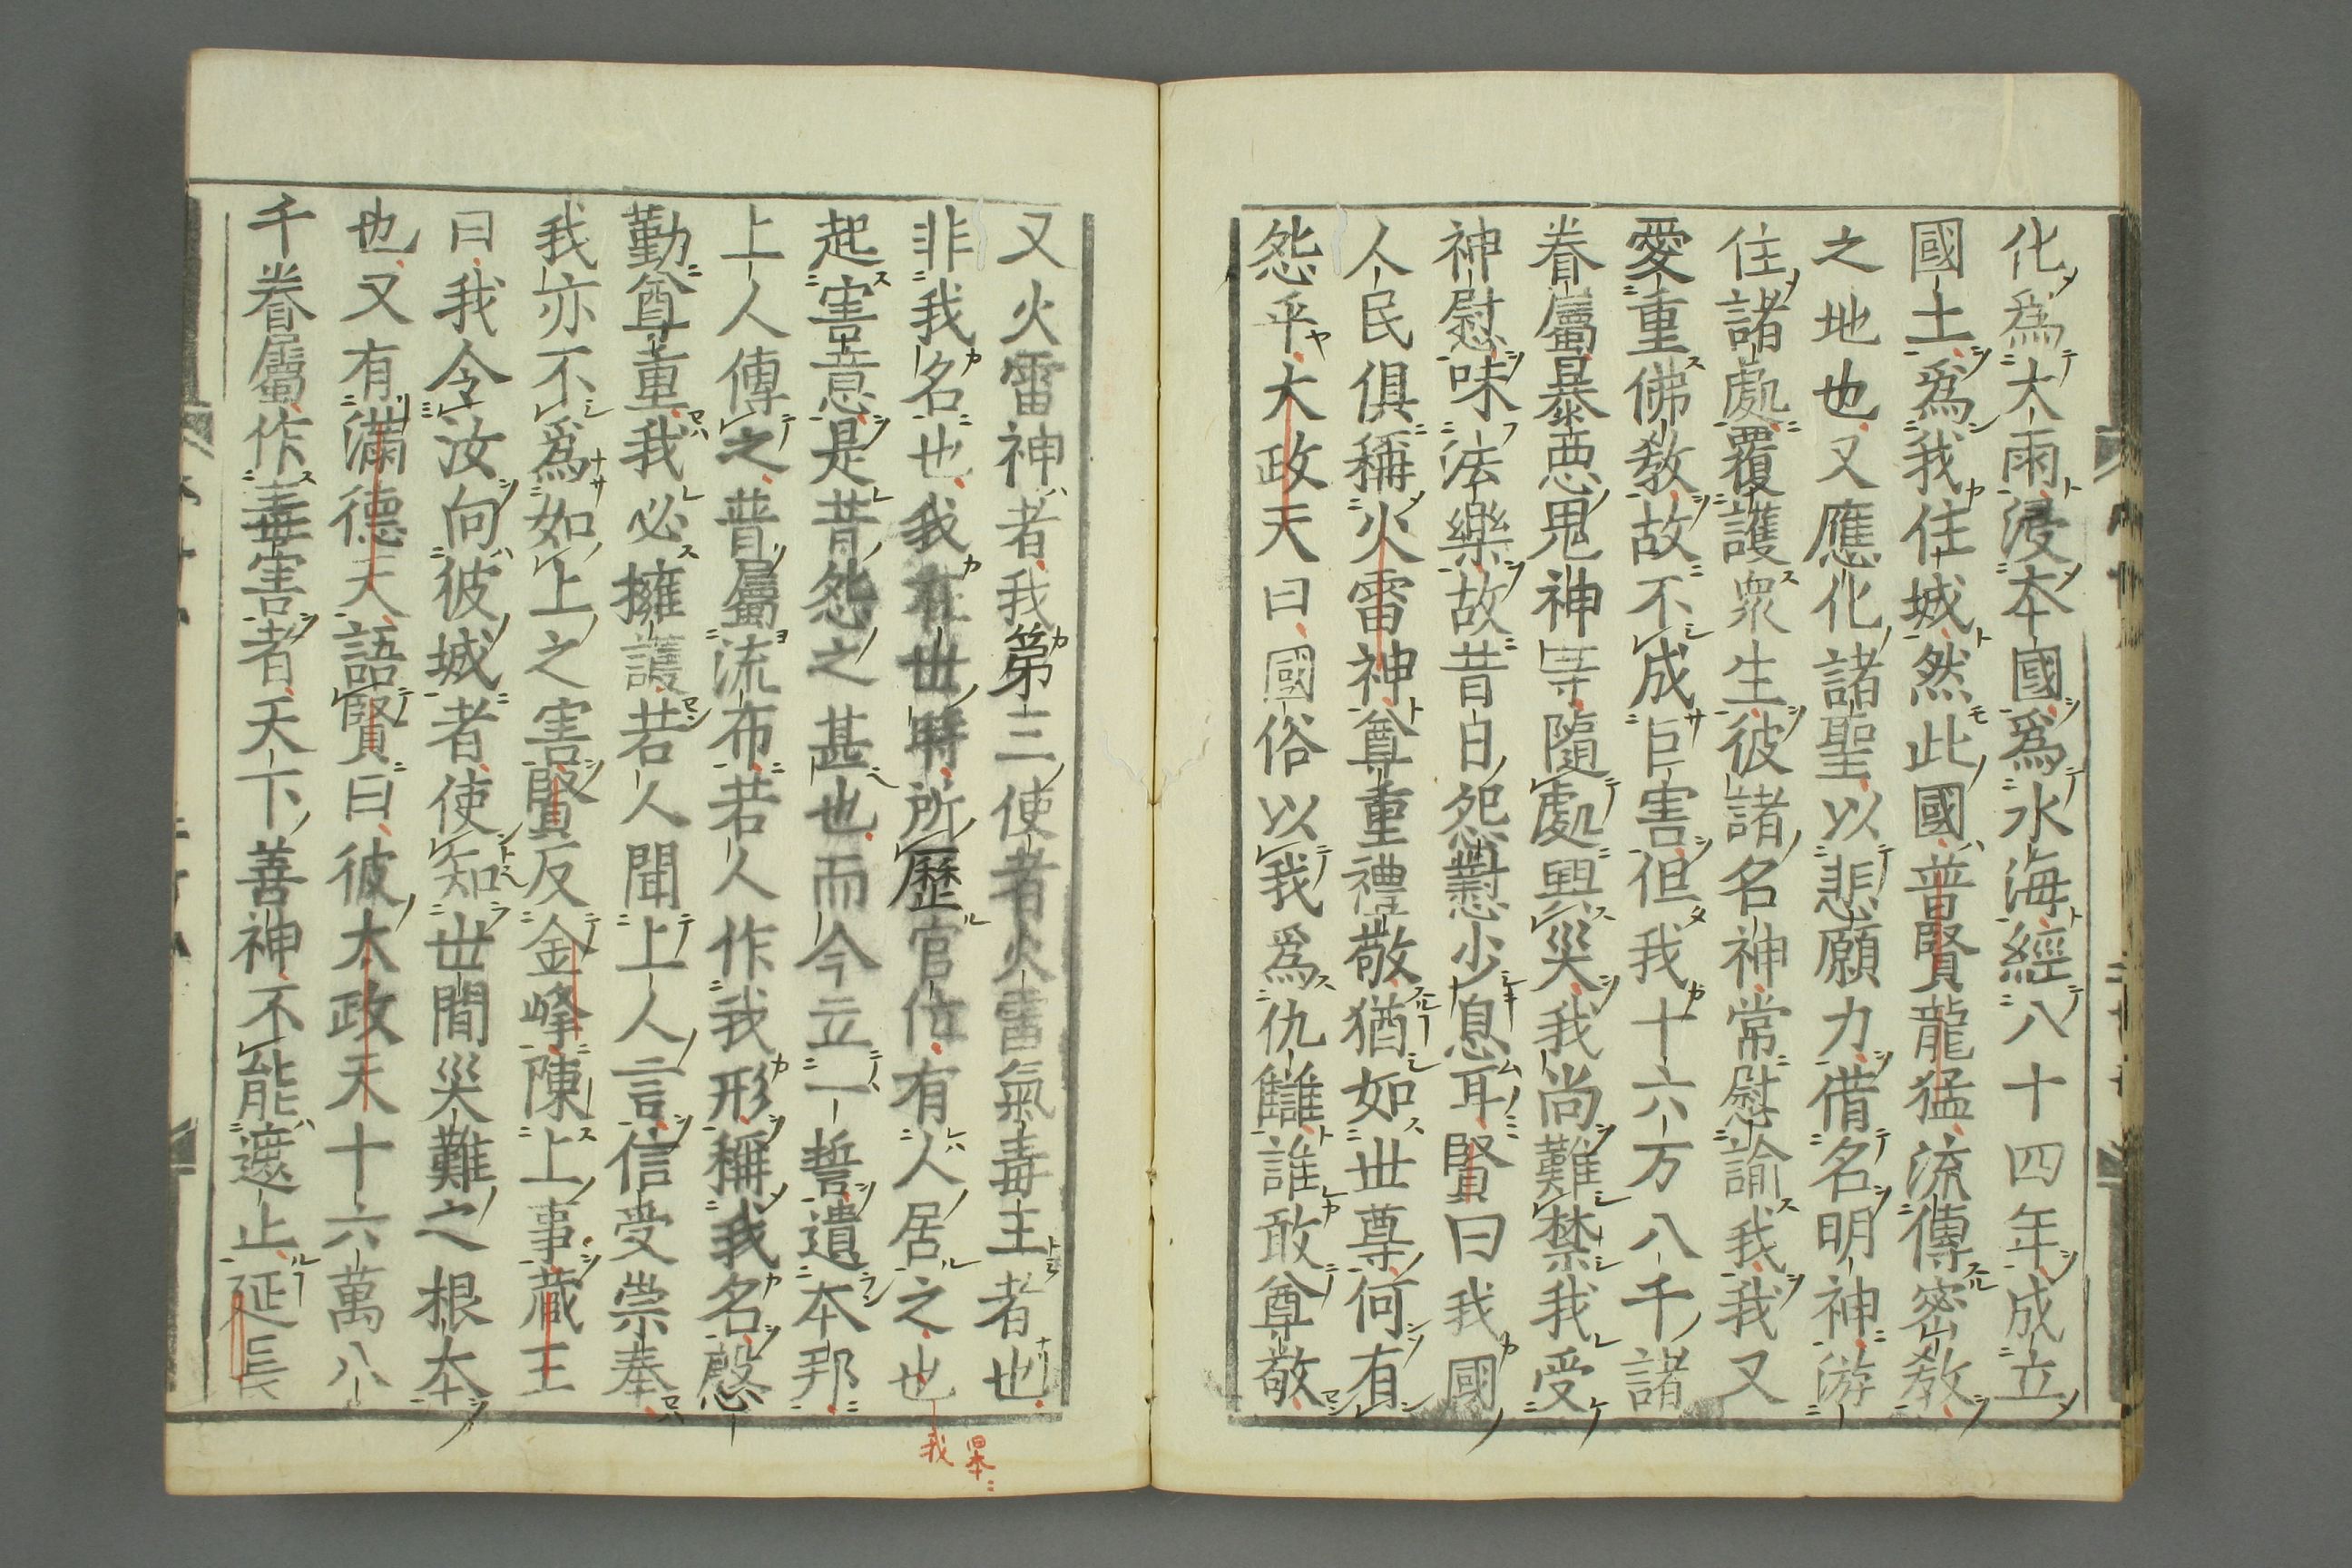 化爲大雨浸本國爲水海經八十四年成立
國土爲我住城然此國普賢龍猛流傳密教
之地也又應化諸聖以悲願力借名明神游
住諸處覆護衆生彼諸名神常慰諭我我又
愛重佛教故不成巨害但我十六万八千諸
眷屬暴惡鬼神等隨處興災我尚難禁我受
神慰味法樂故昔日怨懟少息耳賢曰我國
人民俱稱火雷神尊重禮敬猶如世尊何有
怨乎大政天曰國俗以我爲仇讎誰敢尊敬
又火雷神者我第三使者火雷氣毒主者也
非我名也我在世時所歷官位有人居之也
起害意是昔怨之甚也而今立一誓遺本邦
上人傳之普屬流布若人作我形稱我名慇
勤尊重我必擁護若人聞上人言信受崇奉
我亦不爲如上之害賢反金峰陳上事藏王
曰我令汝向彼城者使知世間災難之根本
也又有滿德天語賢曰彼大政天十六萬八
千眷屬作毒害者天下善神不能遮止延長